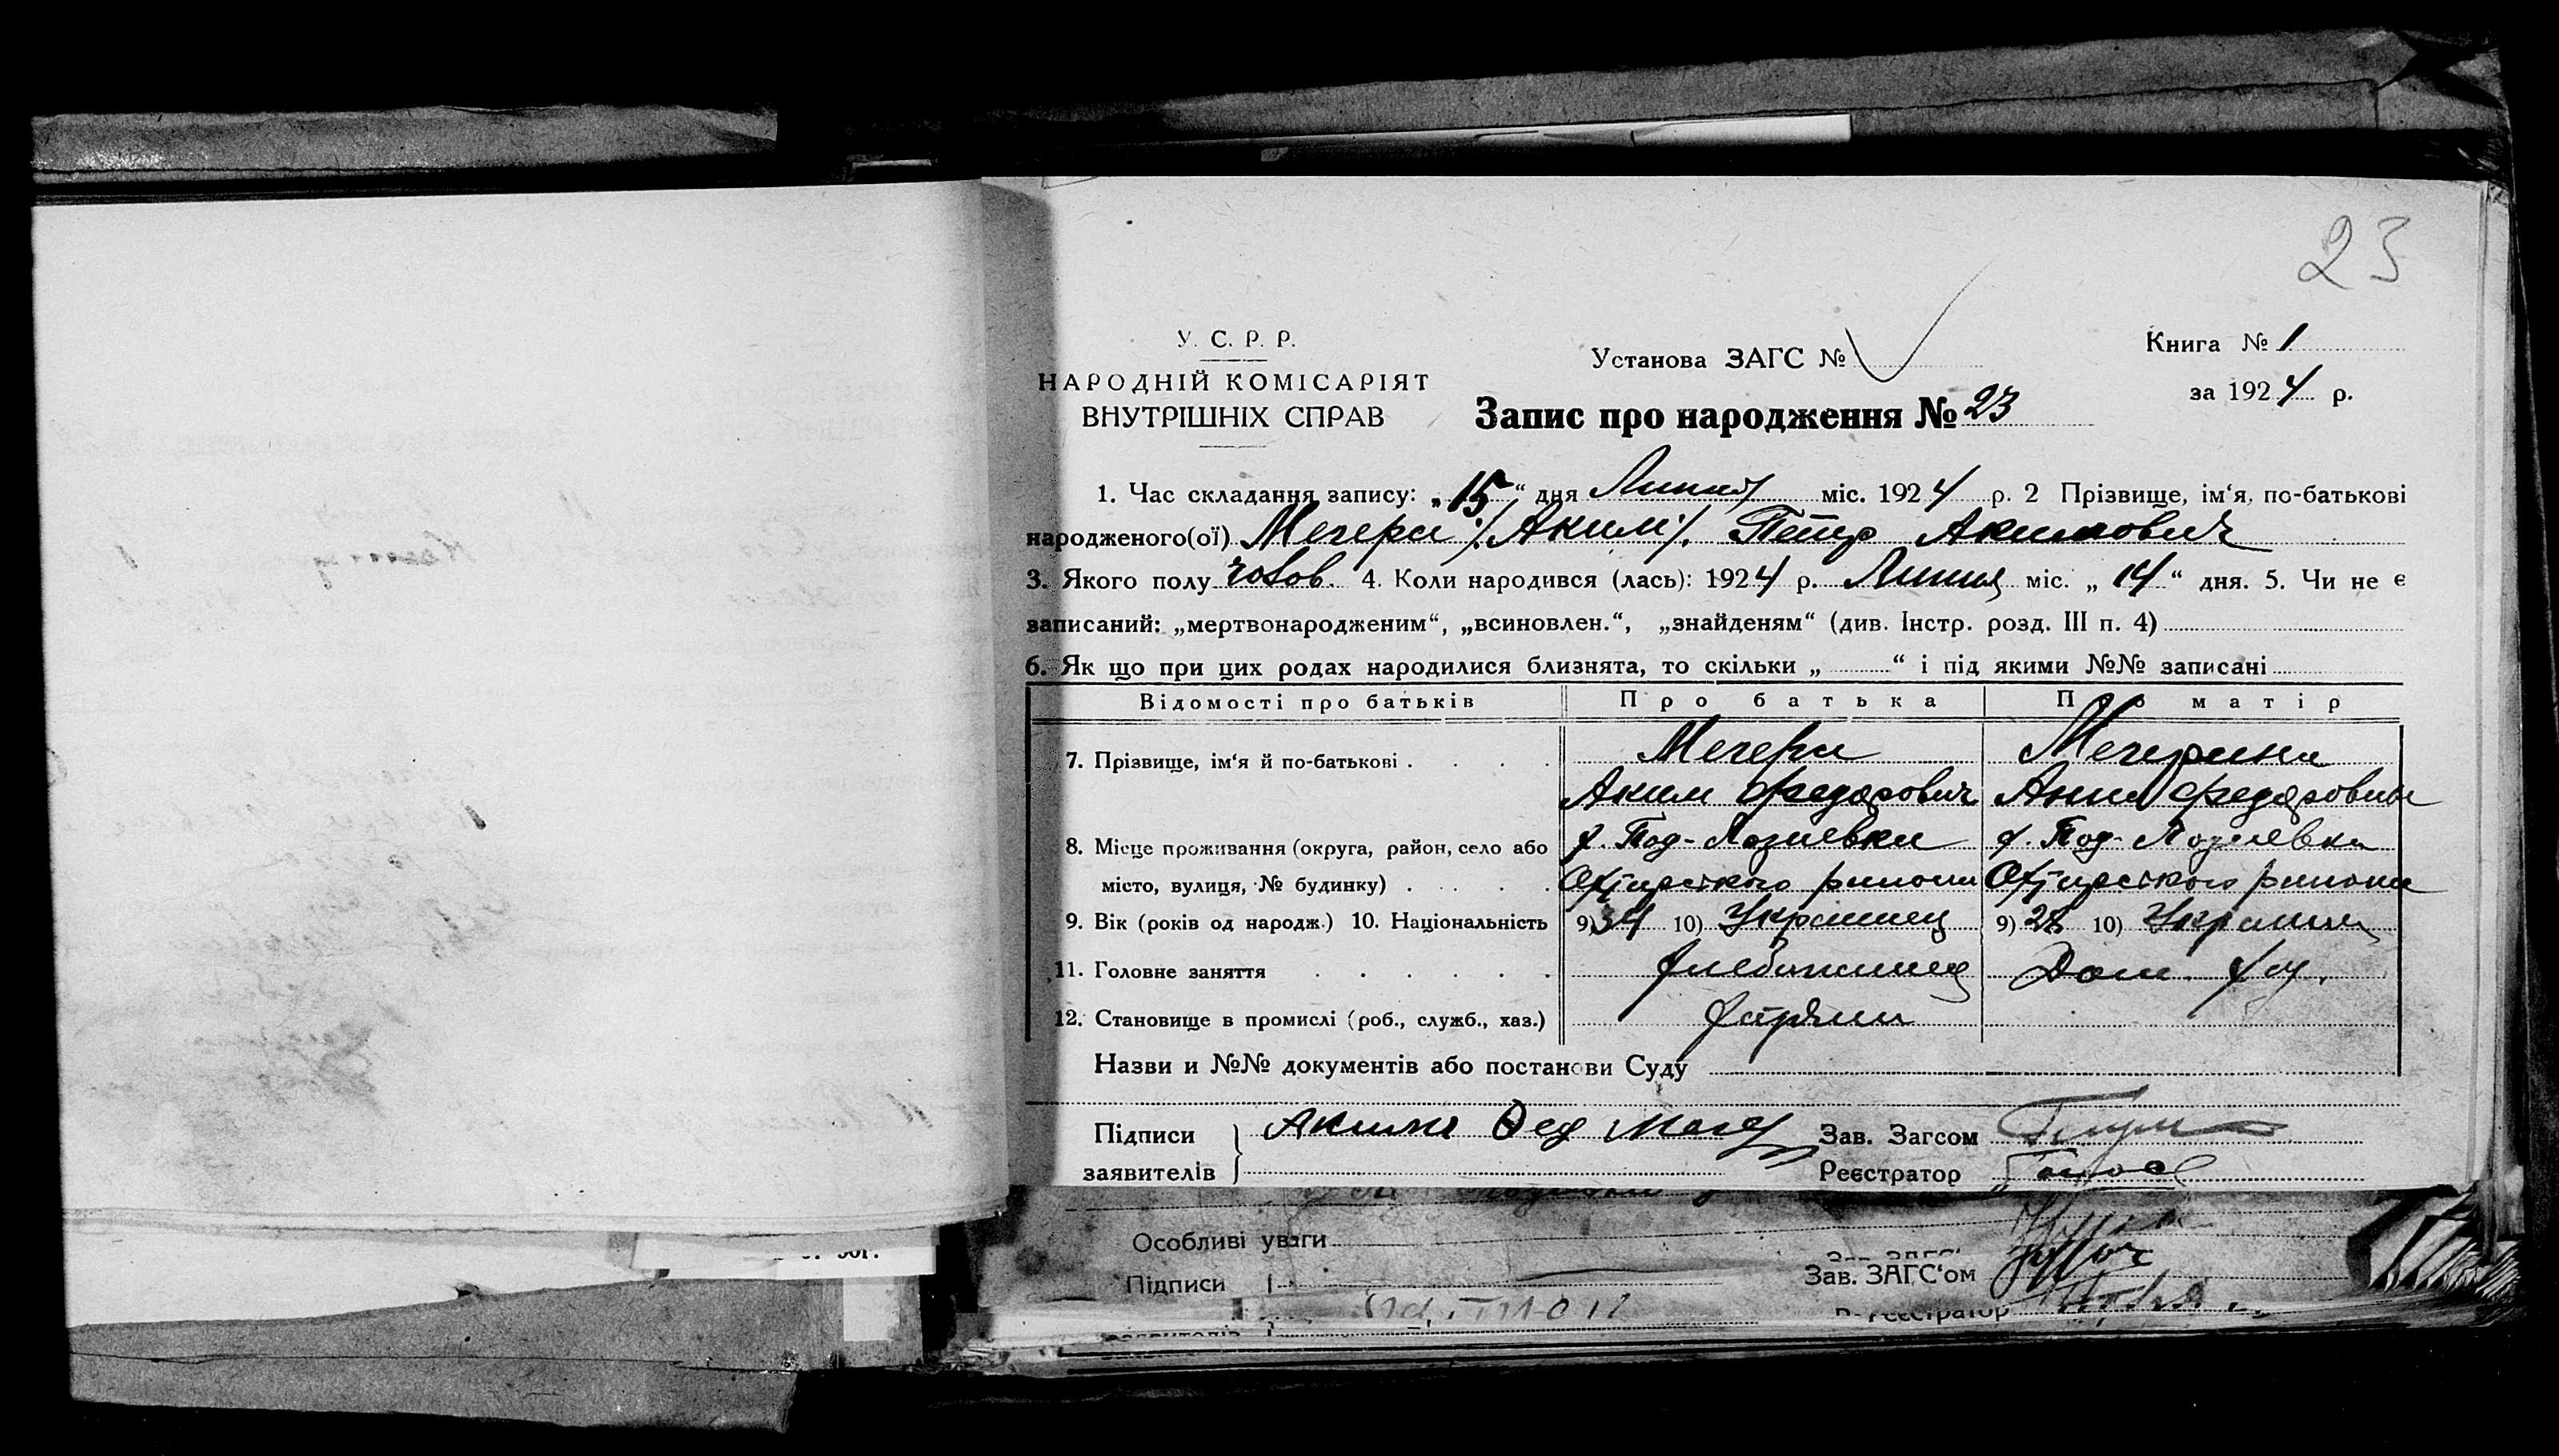 23
У. С. Р. Р.
НАРОДНІЙ КОМІСАРІЯТ
ВНУТРІШНІХ СПРАВ
Установа ЗАГС №
Книга № 1
за 1924 р.
Запис про народження № 23
1. Час складання запису: „15“ дня Липня міс. 1924 р. 2 Прізвище, ім‘я, по-батькові
народженого(ої) Мечера /:Аким:/ Петр Акимович
3. Якого полу чолов. 4. Коли народився (лась): 1924 р. Липня міс. „14“ дня. 5. Чи не є
записаний: „мертвонародженим“, „всиновлен.“, „знайденям“ (див. Інстр. розд. III п. 4)
6. Як що при цих родах народилися близнята, то скільки „ “ і під якими №№ записані
Відомості про батьків Про батька Про матір
7. Прізвище, ім‘я й по-батькові Мечера Мечерина
Аким Федорович Анна Федоровна
8. Місце проживання (округа, район, село або х. Под-Лозиевка х. Под-Лозиевка
місто, вулиця, № будинку) Охтирського района Охтирського района
9. Вік (років од народж.) 10. Національність 9) 34 10) Украинец 9) 28 10) Украин
11. Головне заняття Дом. хоз.
12. Становище в промислі (роб., служб., хаз.)
Назви и №№ документів або постанови Суду
Підписи Аким Фед Зав. Загсом
заявителів Реєстратор
Особливі уваги
Підписи Зав. ЗАГС‘ом
Реєстратор